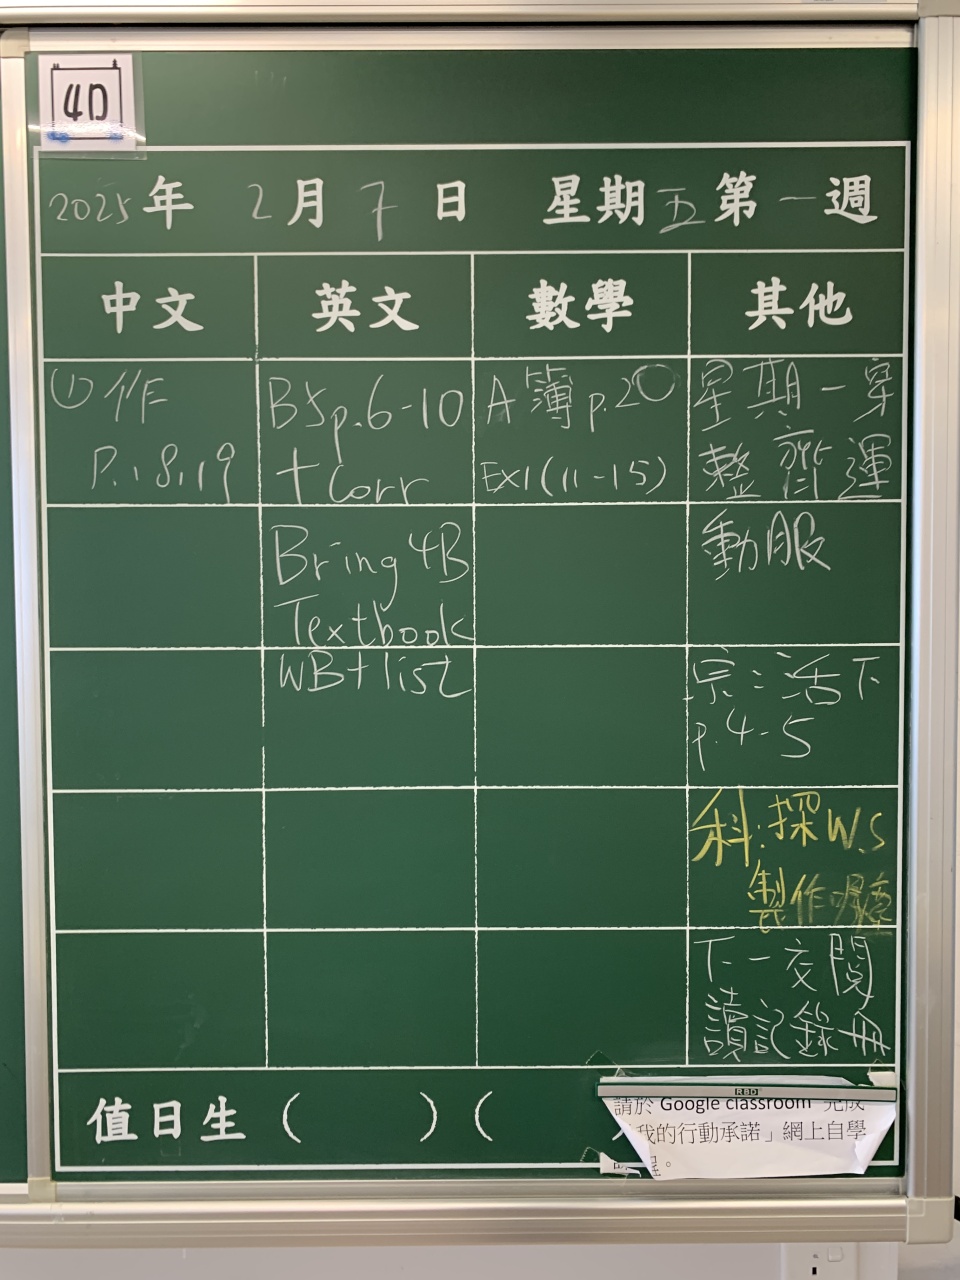 4D
2025年 2月7日 星期五 第一週
中文 英文 數學 其他
①作
P.18,19
BJ p.6-10
+ Corr
Bring 4B
Textbook
WB+list
A簿 p.20
EX1(11-15)
星期一穿
整齊運
動服
宗:活下
p.4-5
科:探W.S
製作
下一交閱
讀記錄冊
值日生 ( ) (
請於 Google classroom 完成
我的行動承諾」網上自學
程。